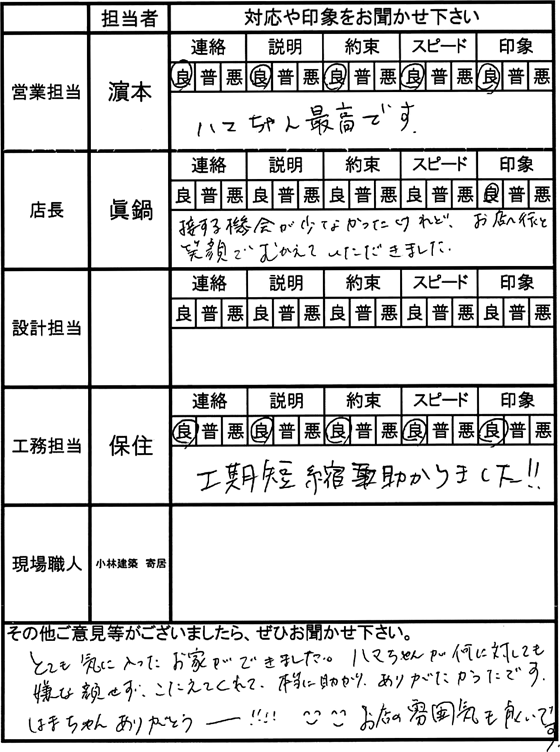 担当者 対応や印象をお聞かせ下さい
連絡 説明 約束 スピード 印象
営業担当 濵本 良 普 悪 良 普 悪 良 普 悪 良 普 悪 良 普 悪
ハマちゃん最高です.
連絡 説明 約束 スピード 印象
店長 眞鍋 良 普 悪 良 普 悪 良 普 悪 良 普 悪 良 普 悪
接する機会が少なかったけれど、お店へ行くと
笑顔でむかえていただきました.
連絡 説明 約束 スピード 印象
設計担当 良 普 悪 良 普 悪 良 普 悪 良 普 悪 良 普 悪
連絡 説明 約束 スピード 印象
工務担当 保住 良 普 悪 良 普 悪 良 普 悪 良 普 悪 良 普 悪
工期短縮助かりました!!
現場職人 小林建築 寄居
その他ご意見等がございましたら、ぜひお聞かせ下さい。
とても気に入ったお家ができました。ハマちゃんが何に対しても
嫌な顔せず、こたえてくれて、本当に助かり、ありがたかったです.
はまちゃんありがとうー!!!! お店の雰囲気も良いです